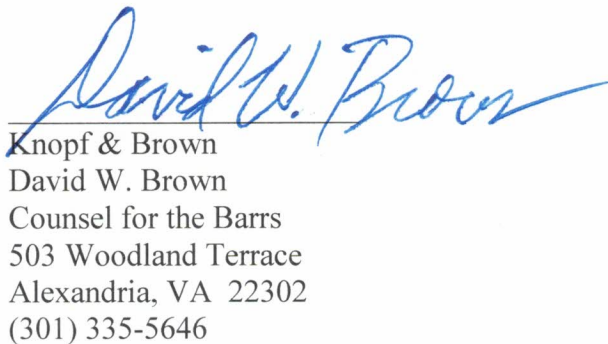 David W. Brown
Knopf & Brown
David W. Brown
Counsel for the Barrs
503 Woodland Terrace
Alexandria, VA 22302
(301) 335-5646